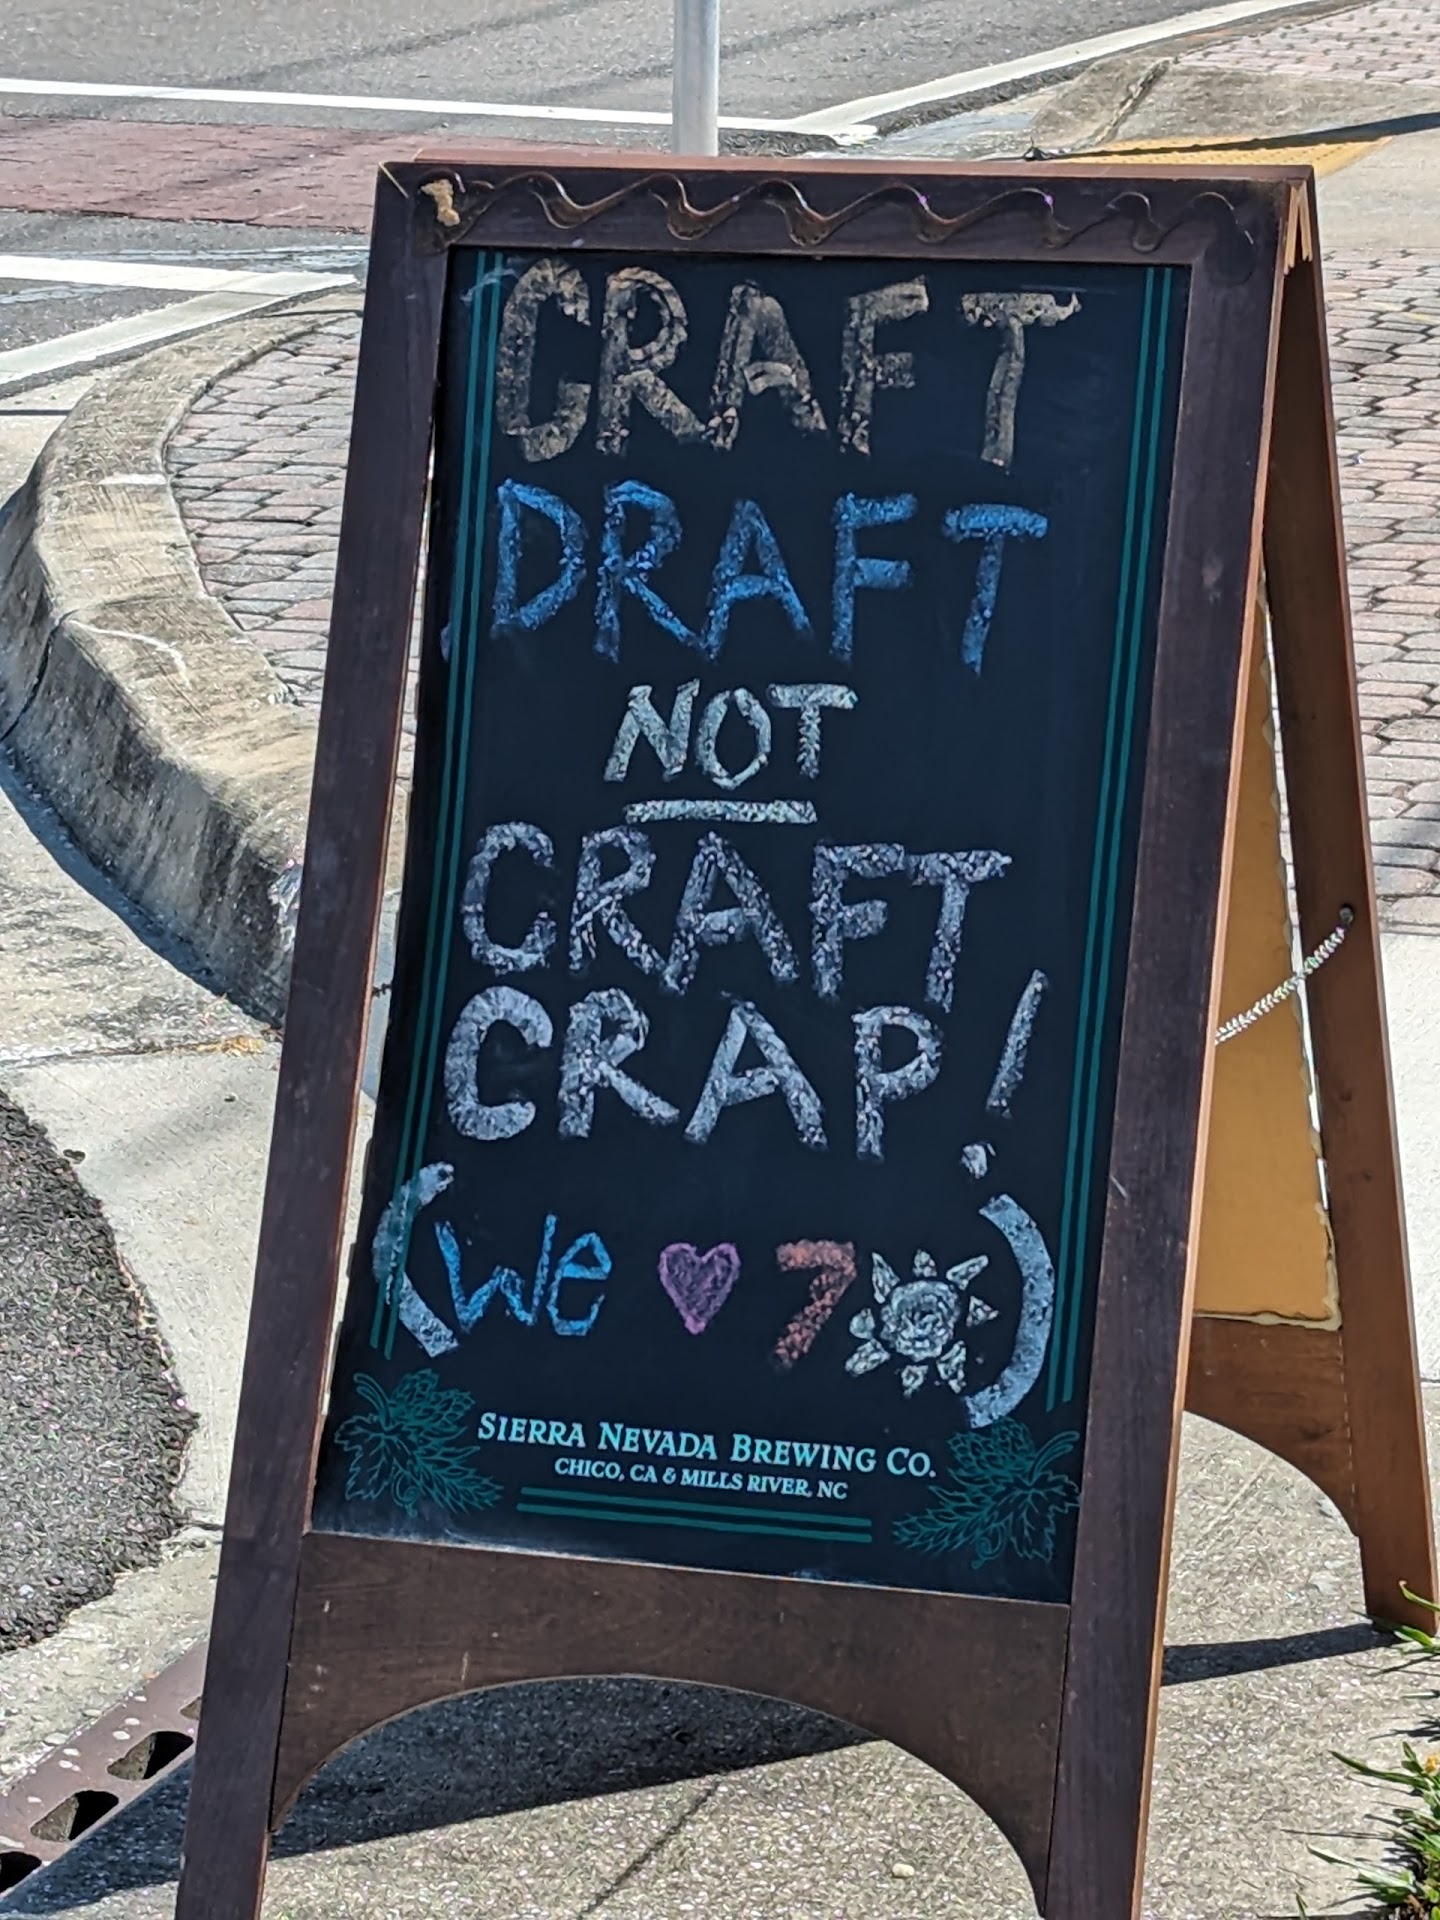 CRAFT
DRAFT
NOT
CRAFT
CRAP!
(We ♥ 7☀)
SIERRA NEVADA BREWING CO.
CHICO, CA & MILLS RIVER, NC